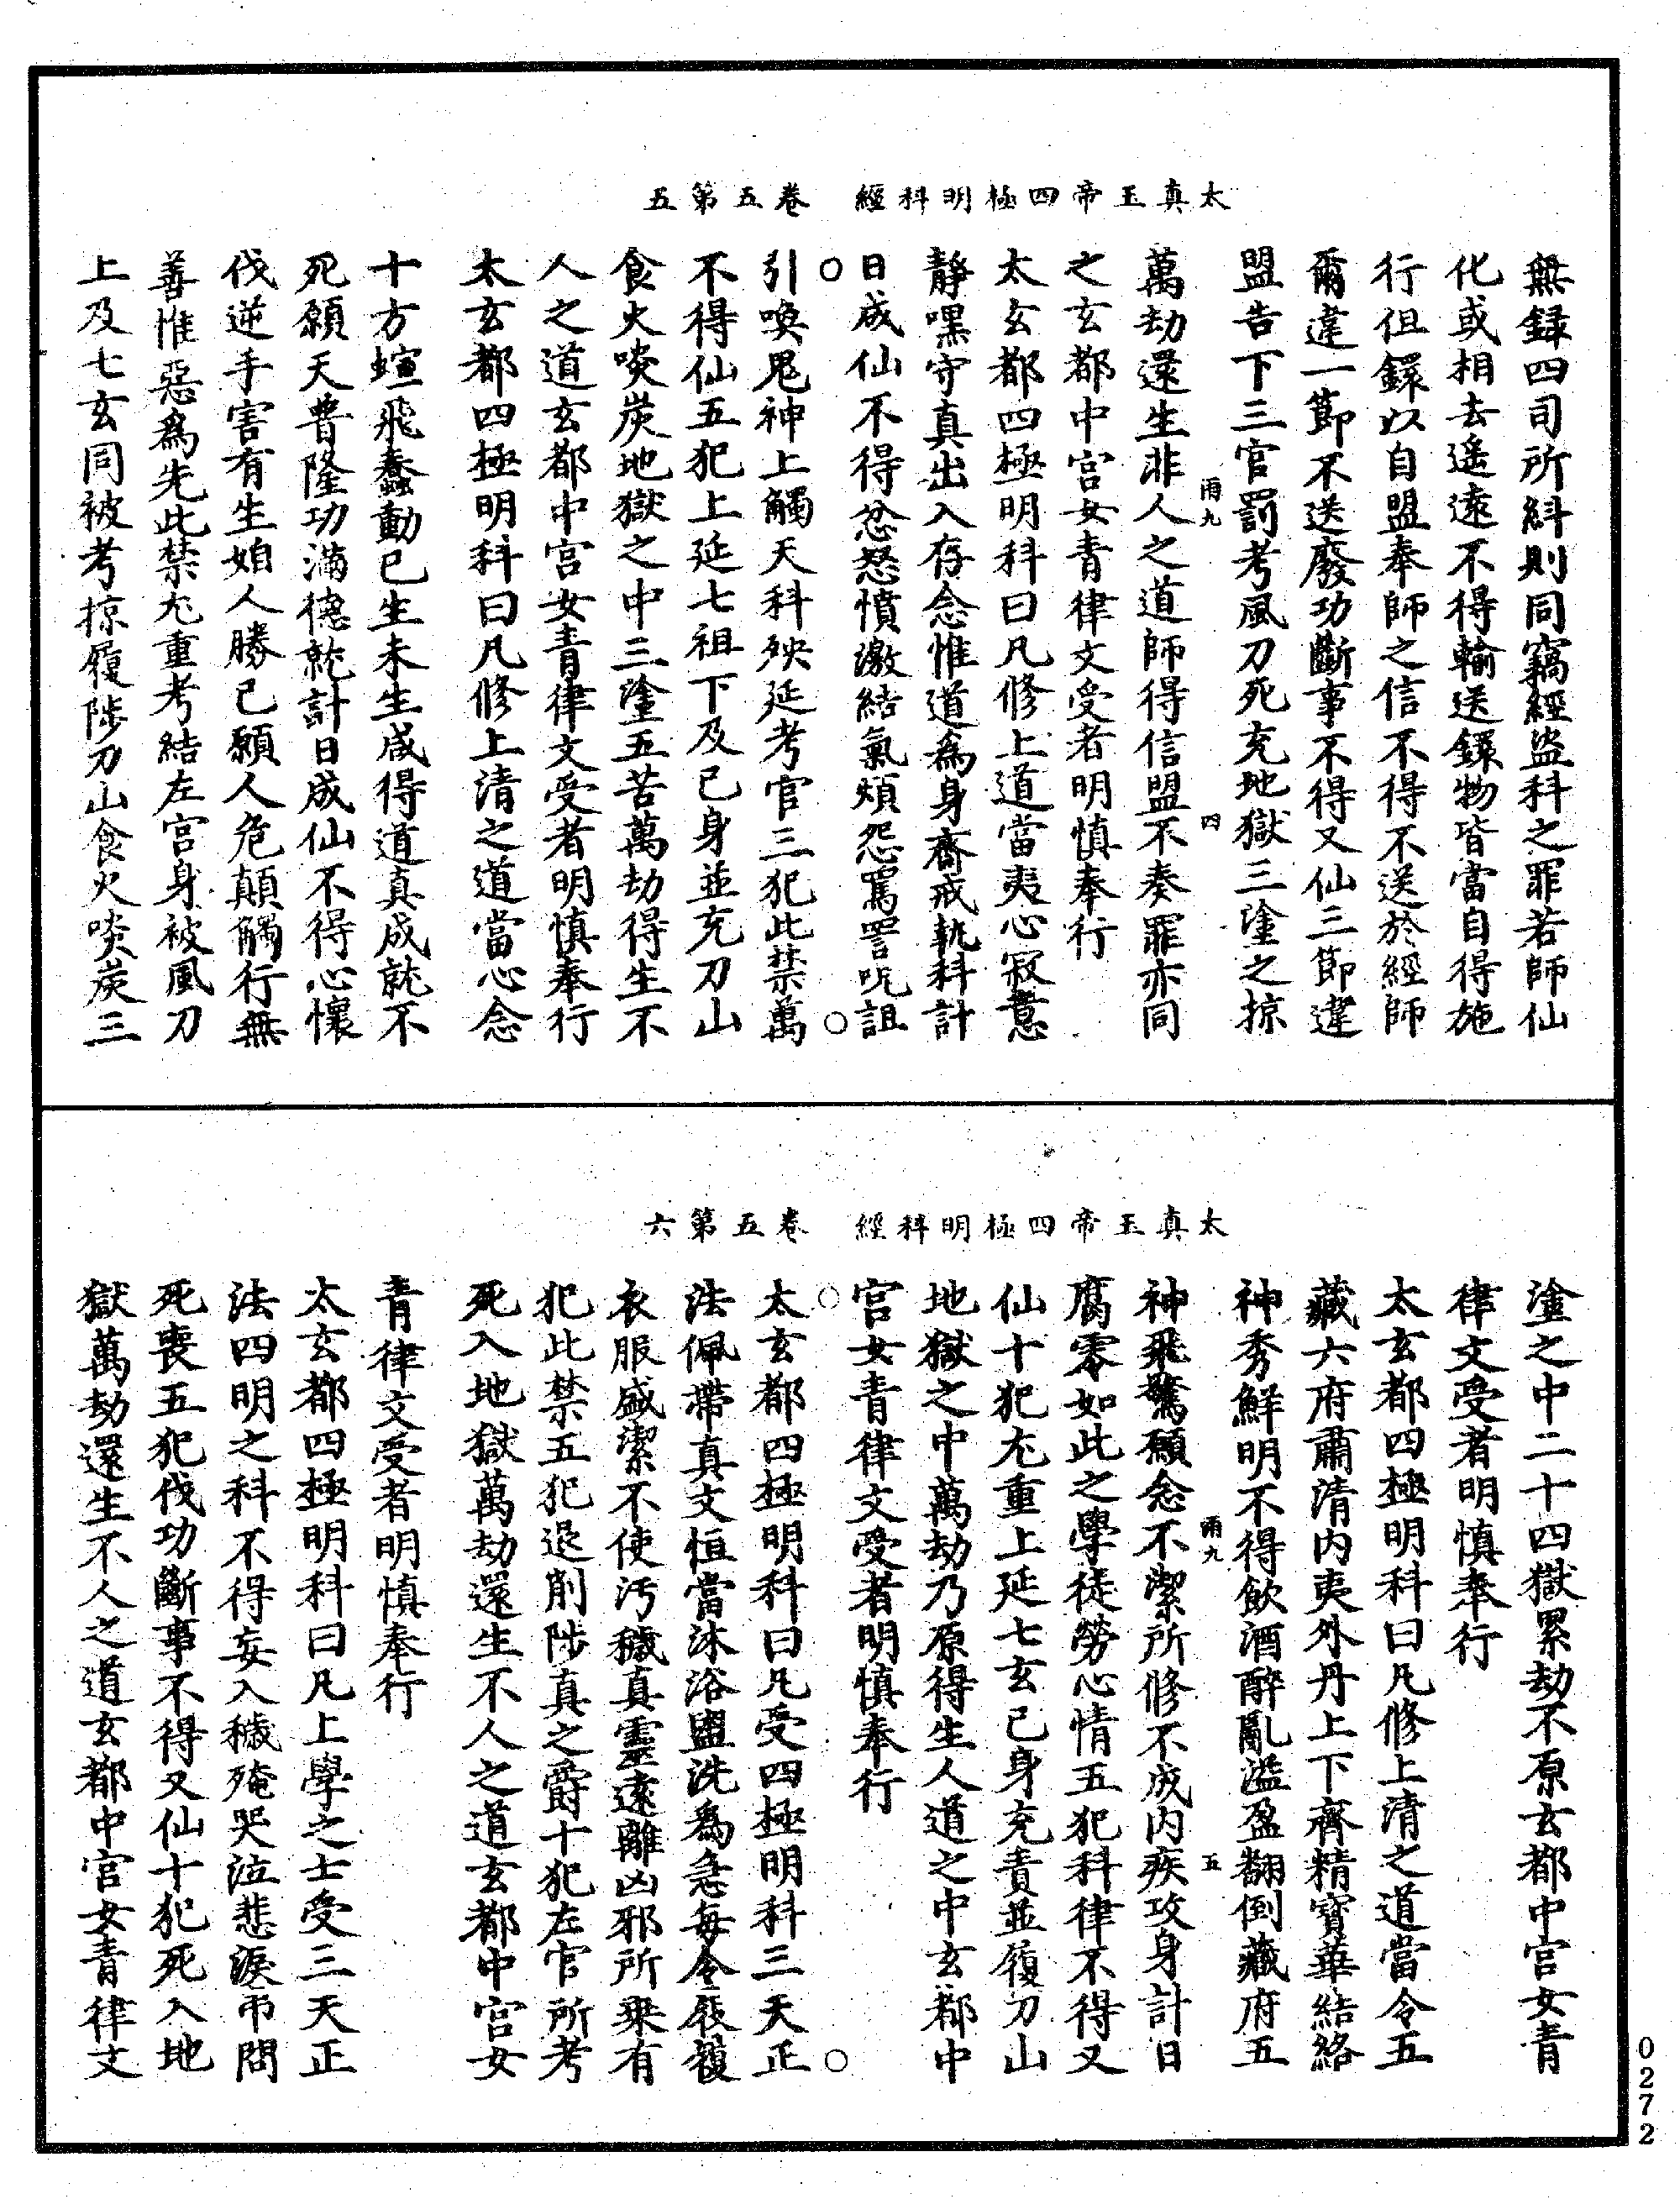 太真玉帝四極明科經　卷五第五
無録四司所糾則同竊經盜科之罪若師仙
化或相去遥遠不得輸送鐶物皆當自得施
行但鐶以自盟奉師之信不得不送於經師
爾違一節不送廢功斷事不得又仙三節違
盟告下三官罰考風刀死充地獄三塗之掠
雨九　四
萬劫還生非人之道師得信盟不奏罪亦同
之玄都中宫女青律文受者明慎奉行
太玄都四極明科曰凡修上道當夷心寂意
静嘿守真出入存念惟道為身齋戒執科計
日成仙不得忿怒憤激結氣煩怨罵詈呪詛
引喚鬼神上觸天科殃延考官三犯此禁萬
不得仙五犯上延七祖下及己身並充刀山
食火啖炭地獄之中三塗五苦萬劫得生不
人之道玄都中宫女青律文受者明慎奉行
太玄都四極明科曰凡修上清之道當心念
十方蝖飛蠢動已生未生咸得道真成就不
死願天普隆功滿德就計日成仙不得心懷
伐逆手害有生妒人勝己願人危顛觸行無
善惟惡為先此禁尤重考結左宫身被風刀
上及七玄同被考掠履陟刀山食火啖炭三
太真玉帝四極明科經　卷五第六
塗之中二十四獄累劫不原玄都中宫女青
律文受者明慎奉行
太玄都四極明科曰凡修上清之道當令五
藏六府肅清内夷外丹上下齊精寶華結絡
神秀鮮明不得飲酒醉亂溢盈翻倒藏府五
雨九　五
神飛驚願念不潔所修不成内疾攻身計日
腐零如此之學徒勞心情五犯科律不得又
仙十犯尤重上延七玄己身充責並履刀山
地獄之中萬劫乃原得生人道之中玄都中
宫女青律文受者明慎奉行
太玄都四極明科曰凡受四極明科三天正
法佩帶真文恒當沐浴盥洗為急每令屐履
衣服盛潔不使汚穢真靈遠離凶邪所乘有
犯此禁五犯退削陟真之爵十犯左官所考
死入地獄萬劫還生不人之道玄都中宫女
青律文受者明慎奉行
太玄都四極明科曰凡上學之士受三天正
法四明之科不得妄入穢殗哭泣悲淚弔問
死喪五犯伐功斷事不得又仙十犯死入地
獄萬劫還生不人之道玄都中宫女青律文
0272